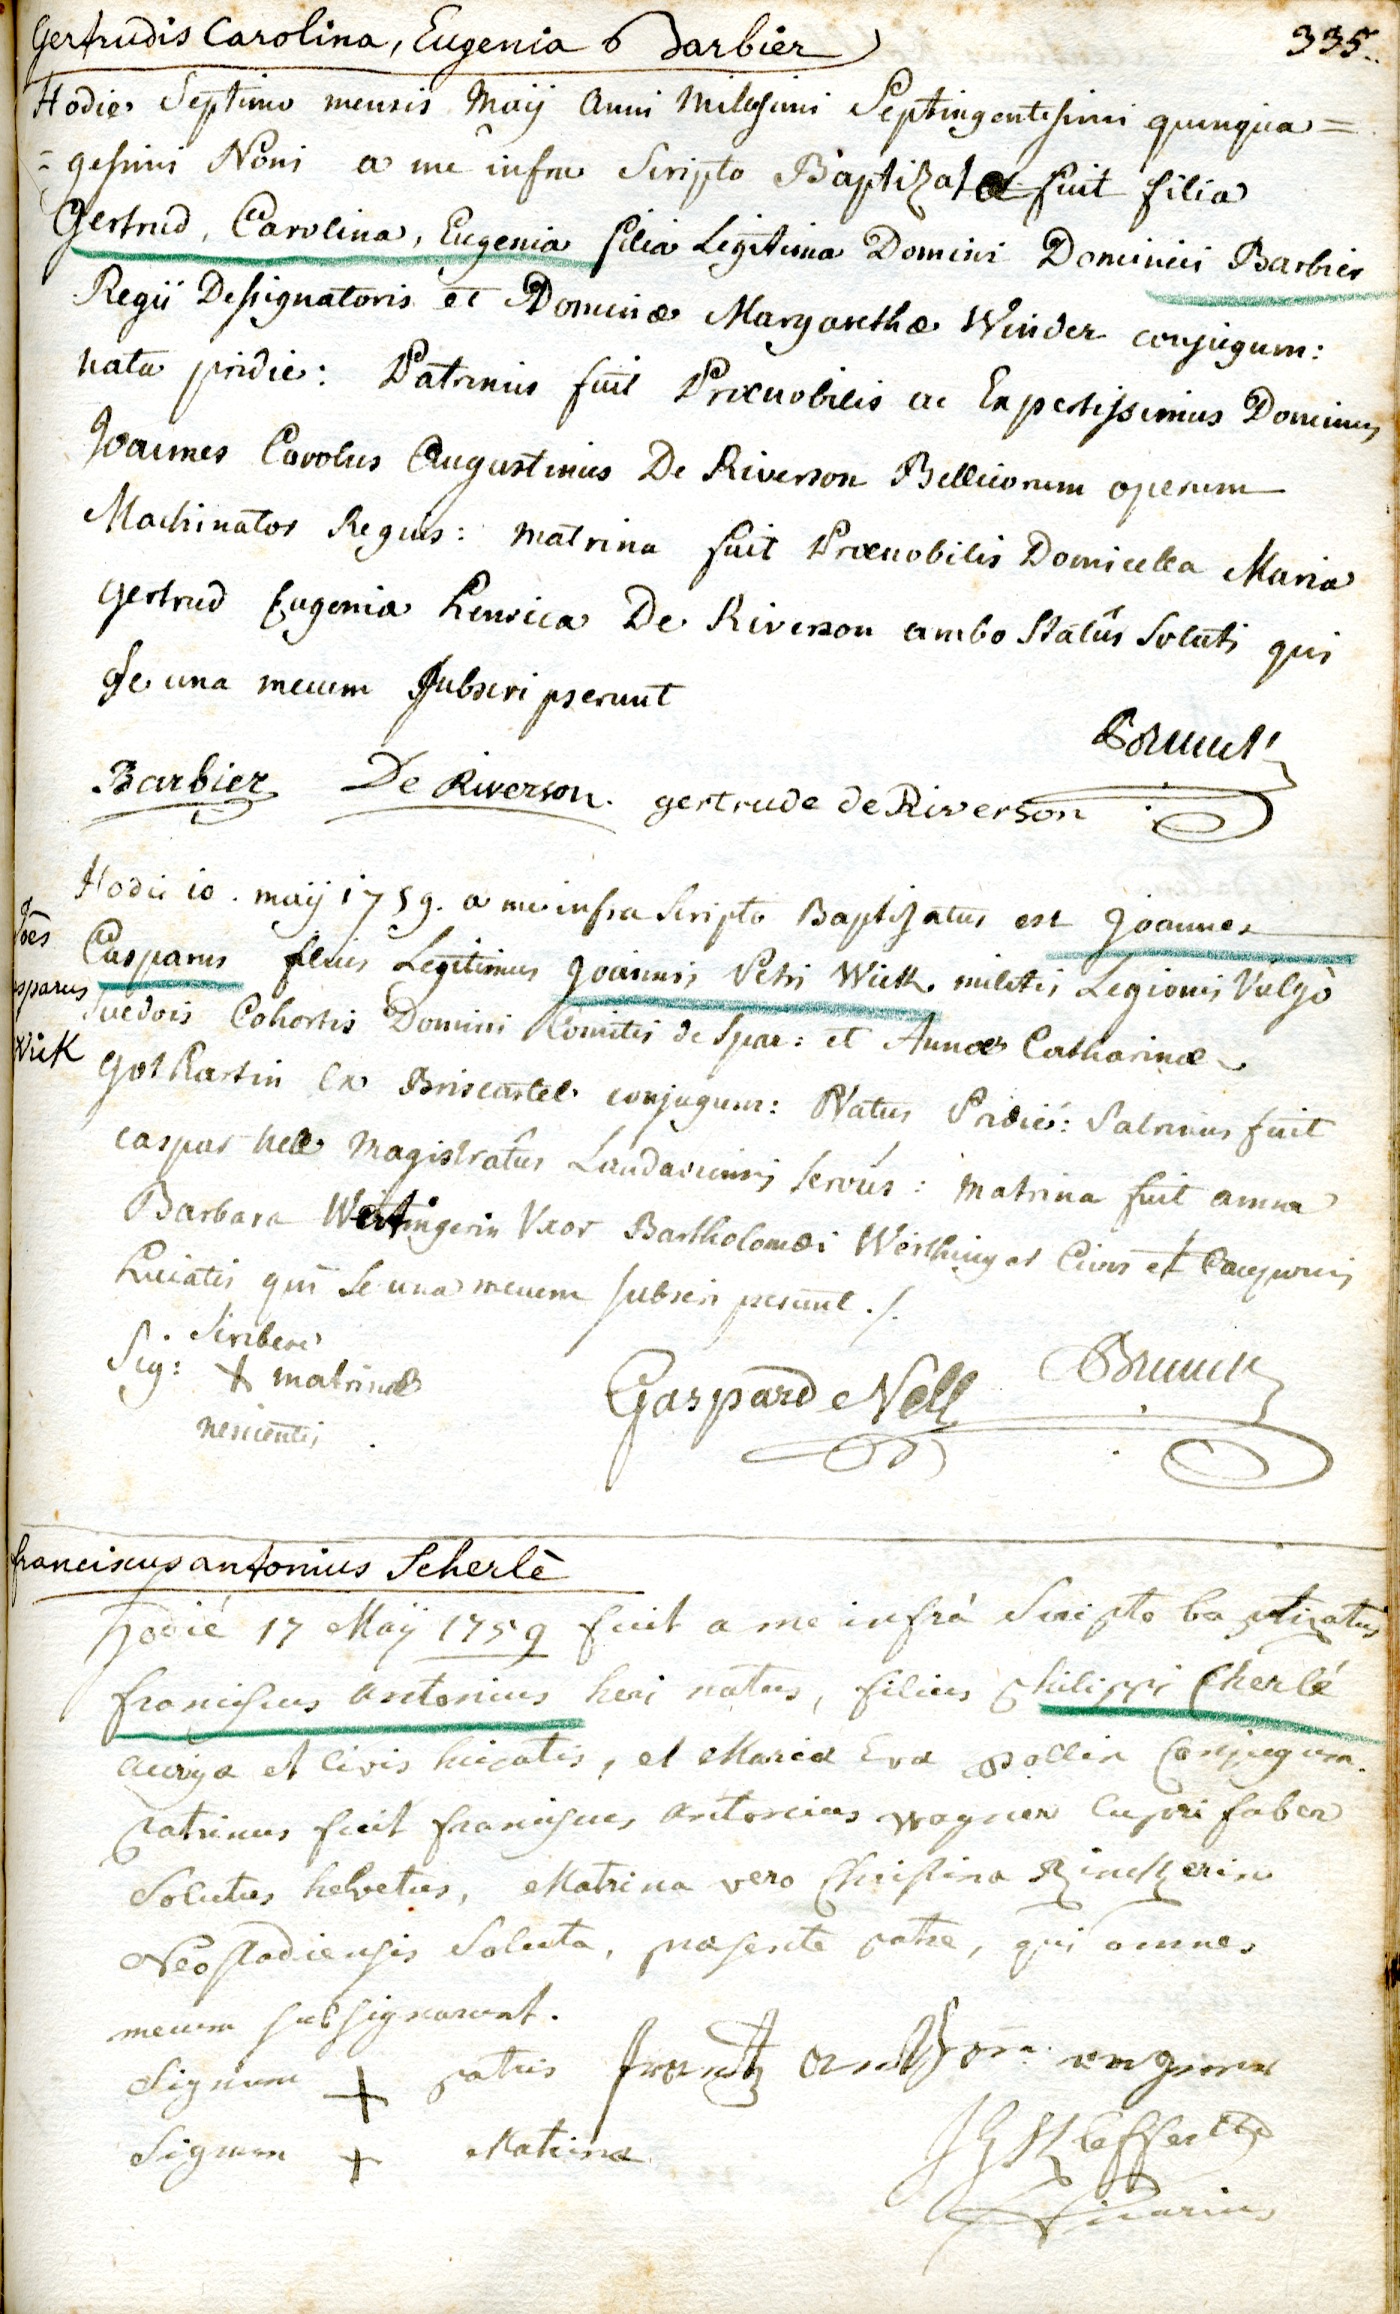 Gertrudis Carolina, Eugenia Barbier
335.
Hodie Septimo mensis Maij Anni Millesimi Septingentesimi quinqua=
=gesimi Noni a me infra Scripto Baptizata fuit filia
Gertrud, Carolina, Eugenia filia Legitima Domini Dominici Barbier
Regii Dessignatoris et Dominæ Margarethæ Winder conjugum:
nata pridie: Patrinus fuit Prænobilis ac Expertissimus Dominus
Joannes Carolus Augustinus De Riverson Bellicorum operum
Machinator Regius: matrina fuit Prænobilis Domicella Maria
Gertrud Eugenia Henrica De Riverson ambo Statûs Soluti qui
se una mecum Subscripserunt
Brunck
Barbier De Riverson. gertrude de Riverson
Hodie 10. maij 1759. a me infra Scripto Baptizatus est Joannes
Joês
Casparus filius Legitimus Joannis Petri Wick militis Legionis Vulgò
sparus
Suedois Cohortis Domini Comitis de Spar: et Annæ Catharinæ
Wick
Gothartin ex Briscastel conjugum: Natus Pridié: Patrinus fuit
caspar Nell Magistratûs Landaviensis servus: Matrina fuit anna
Barbara Wertingerin Uxor Bartholomæi Werthinger Civis et Cauponis
huiatis qui se una mecum subscripserunt ./.
Scribere
Sig: + matrinæ
nescientis
Gaspard Nell Brunck
franciscus antonius Scherlè
hodié 17 Maij 1759 fuit a me infrá Scripto baptizatus
franciscus antonius heri natus, filius philippi Cherlé
aurigæ et Civis huiatis, et Mariæ Eva pollin Conjugum.
patrinus fuit franciscus antonius wagner Cupri faber
Solutus helvetus, Matrina vero Christina
Neostadiensis Soluta, præsente patre, qui omnes
mecum subsignarunt.
Signum + patris frantz anthoni wagner
Signum + Matrinæ
Vicarius